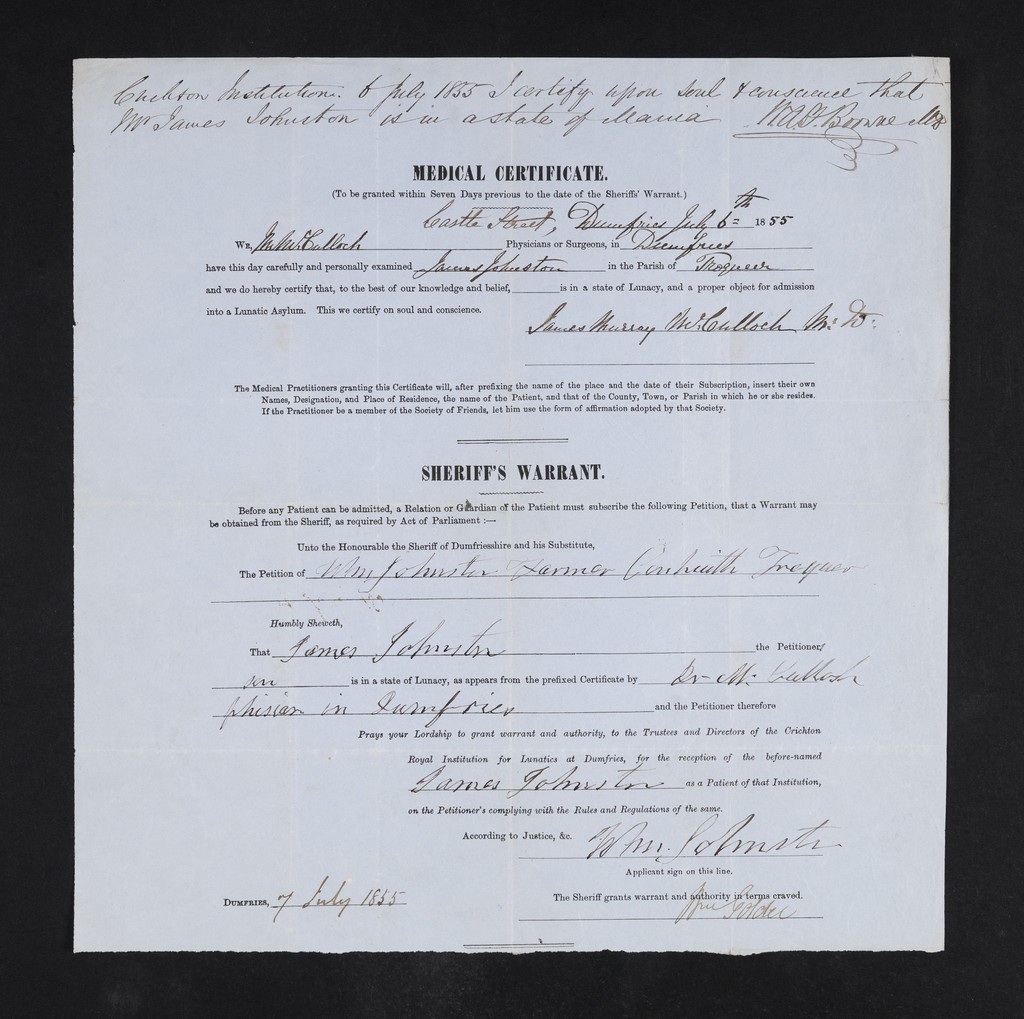 Crichton Institution. 6 July 1855 I certify upon soul & conscience that
Mr James Johnston is in a state of Mania W.A.F. Browne MD
MEDICAL CERTIFICATE.
(To be granted within Seven Days previous to the date of the Sheriffs' Warrant.)
Castle Street, Dumfries July 6th 1855
WE, McCulloch Physicians or Surgeons, in Dumfries
have this day carefully and personally examined James Johnston in the Parish of Troqueer
and we do hereby certify that, to the best of our knowledge and belief, is in a state of Lunacy, and a proper object for admission
into a Lunatic Asylum. This we certify on soul and conscience.
James Murray McCulloch M: D:
The Medical Practitioners granting this Certificate will, after prefixing the name of the place and the date of their Subscription, insert their own
Names, Designation, and Place of Residence, the name of the Patient, and that of the County, Town, or Parish in which he or she resides.
If the Practitioner be a member of the Society of Friends, let him use the form of affirmation adopted by that Society.
SHERIFF'S WARRANT.
Before any Patient can be admitted, a Relation or Guardian of the Patient must subscribe the following Petition, that a Warrant may
be obtained from the Sheriff, as required by Act of Parliament :—
Unto the Honourable the Sheriff of Dumfriesshire and his Substitute,
The Petition of Wm Johnston Farmer Troqueer
Humbly Sheweth,
That James Johnston the Petitioner/
son is in a state of Lunacy, as appears from the prefixed Certificate by Dr Mc Culloch
phisian in Dumfries and the Petitioner therefore
Prays your Lordship to grant warrant and authority, to the Trustees and Directors of the Crichton
Royal Institution for Lunatics at Dumfries, for the reception of the before-named
James Johnston as a Patient of that Institution,
on the Petitioner's complying with the Rules and Regulations of the same.
According to Justice, &c. Wm. Johnston
Applicant sign on this line.
DUMFRIES, 7 July 1855
The Sheriff grants warrant and authority in terms craved.
Wm Goldie